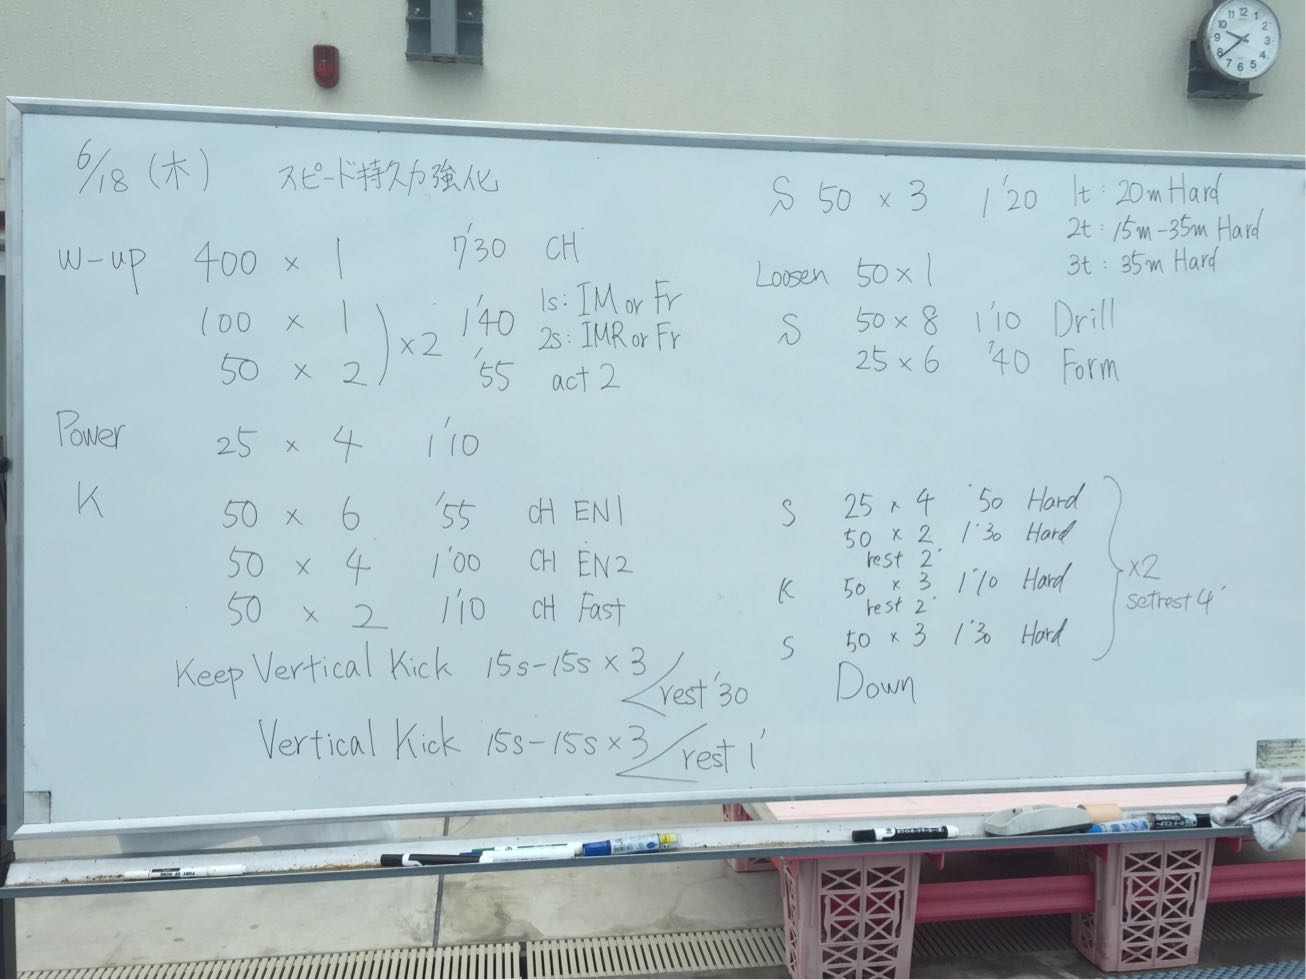 6/18 (木) スピード持久力強化
W-up 400 × 1 7'30 CH
100 × 1 1'40 1s: IM or Fr
2s: IMR or Fr
50 × 2 '55 act 2
×2
Power 25 × 4 1'10
K 50 × 6 '55 CH EN1
50 × 4 1'00 CH EN2
50 × 2 1'10 CH Fast
Keep Vertical Kick 15s-15s × 3
rest '30
Vertical Kick 15s-15s × 3
rest 1'
S 50 × 3 1'20 1t: 20m Hard
2t: 15m-35m Hard
3t: 35m Hard
Loosen 50 × 1
S 50 × 8 1'10 Drill
25 × 6 '40 Form
S 25 × 4 '50 Hard
50 × 2 1'30 Hard
rest 2'
K 50 × 3 1'10 Hard
rest 2'
S 50 × 3 1'30 Hard
×2
setrest 4'
Down
11 12 1 2 3 4 5 6 7 8 9 10